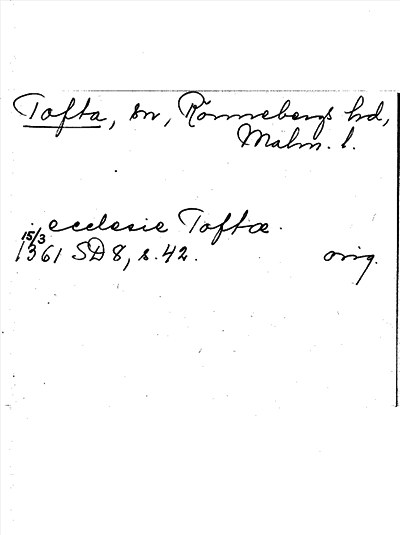 Tofta, sn, Rönnebergs hd,
Malm. l.
i ecclesie Toftæ.
15/3
1361 SD 8, s. 42. orig.